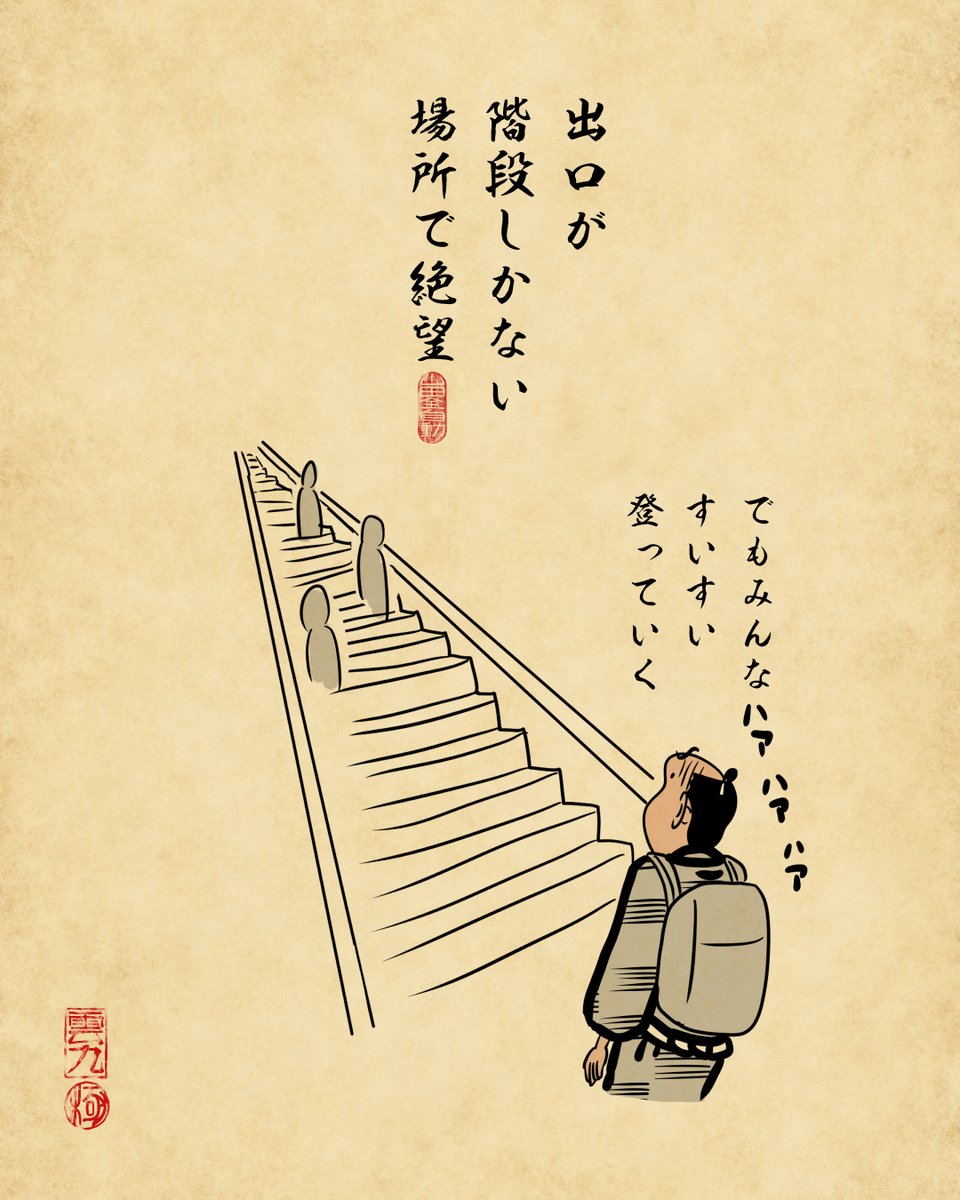 出口が
階段しかない
場所で絶望
でもみんな
すいすい
登っていく
ハァ
ハァ
ハァ